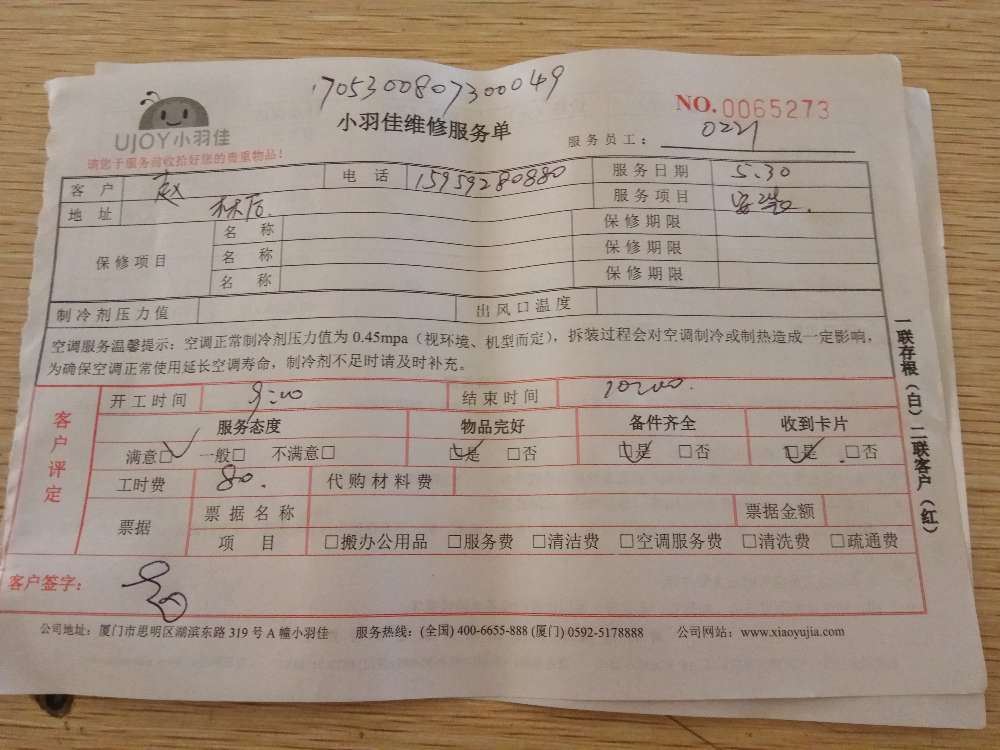 17053008073000049
UJOY小羽佳
小羽佳维修服务单
NO.0065273
服务员工： 0221
请您于服务前收拾好您的贵重物品！
客户 赵 电话 15959280880 服务日期 5.30
地址 林后. 服务项目 安装.
保修项目 名称 保修期限
名称 保修期限
名称 保修期限
制冷剂压力值 出风口温度
空调服务温馨提示：空调正常制冷剂压力值为 0.45mpa（视环境、机型而定），拆装过程会对空调制冷或制热造成一定影响，
为确保空调正常使用延长空调寿命，制冷剂不足时请及时补充。
客户评定
开工时间 9:00 结束时间 10:00.
服务态度 物品完好 备件齐全 收到卡片
满意□ 一般□ 不满意□ □是 □否 □是 □否 □是 □否
工时费 80. 代购材料费
票据 票据名称 票据金额
项目 □搬办公用品 □服务费 □清洁费 □空调服务费 □清洗费 □疏通费
客户签字：
公司地址：厦门市思明区湖滨东路 319 号 A 幢小羽佳 服务热线：(全国) 400-6655-888 (厦门) 0592-5178888 公司网站：www.xiaoyujia.com
一联存根（白）二联客户（红）